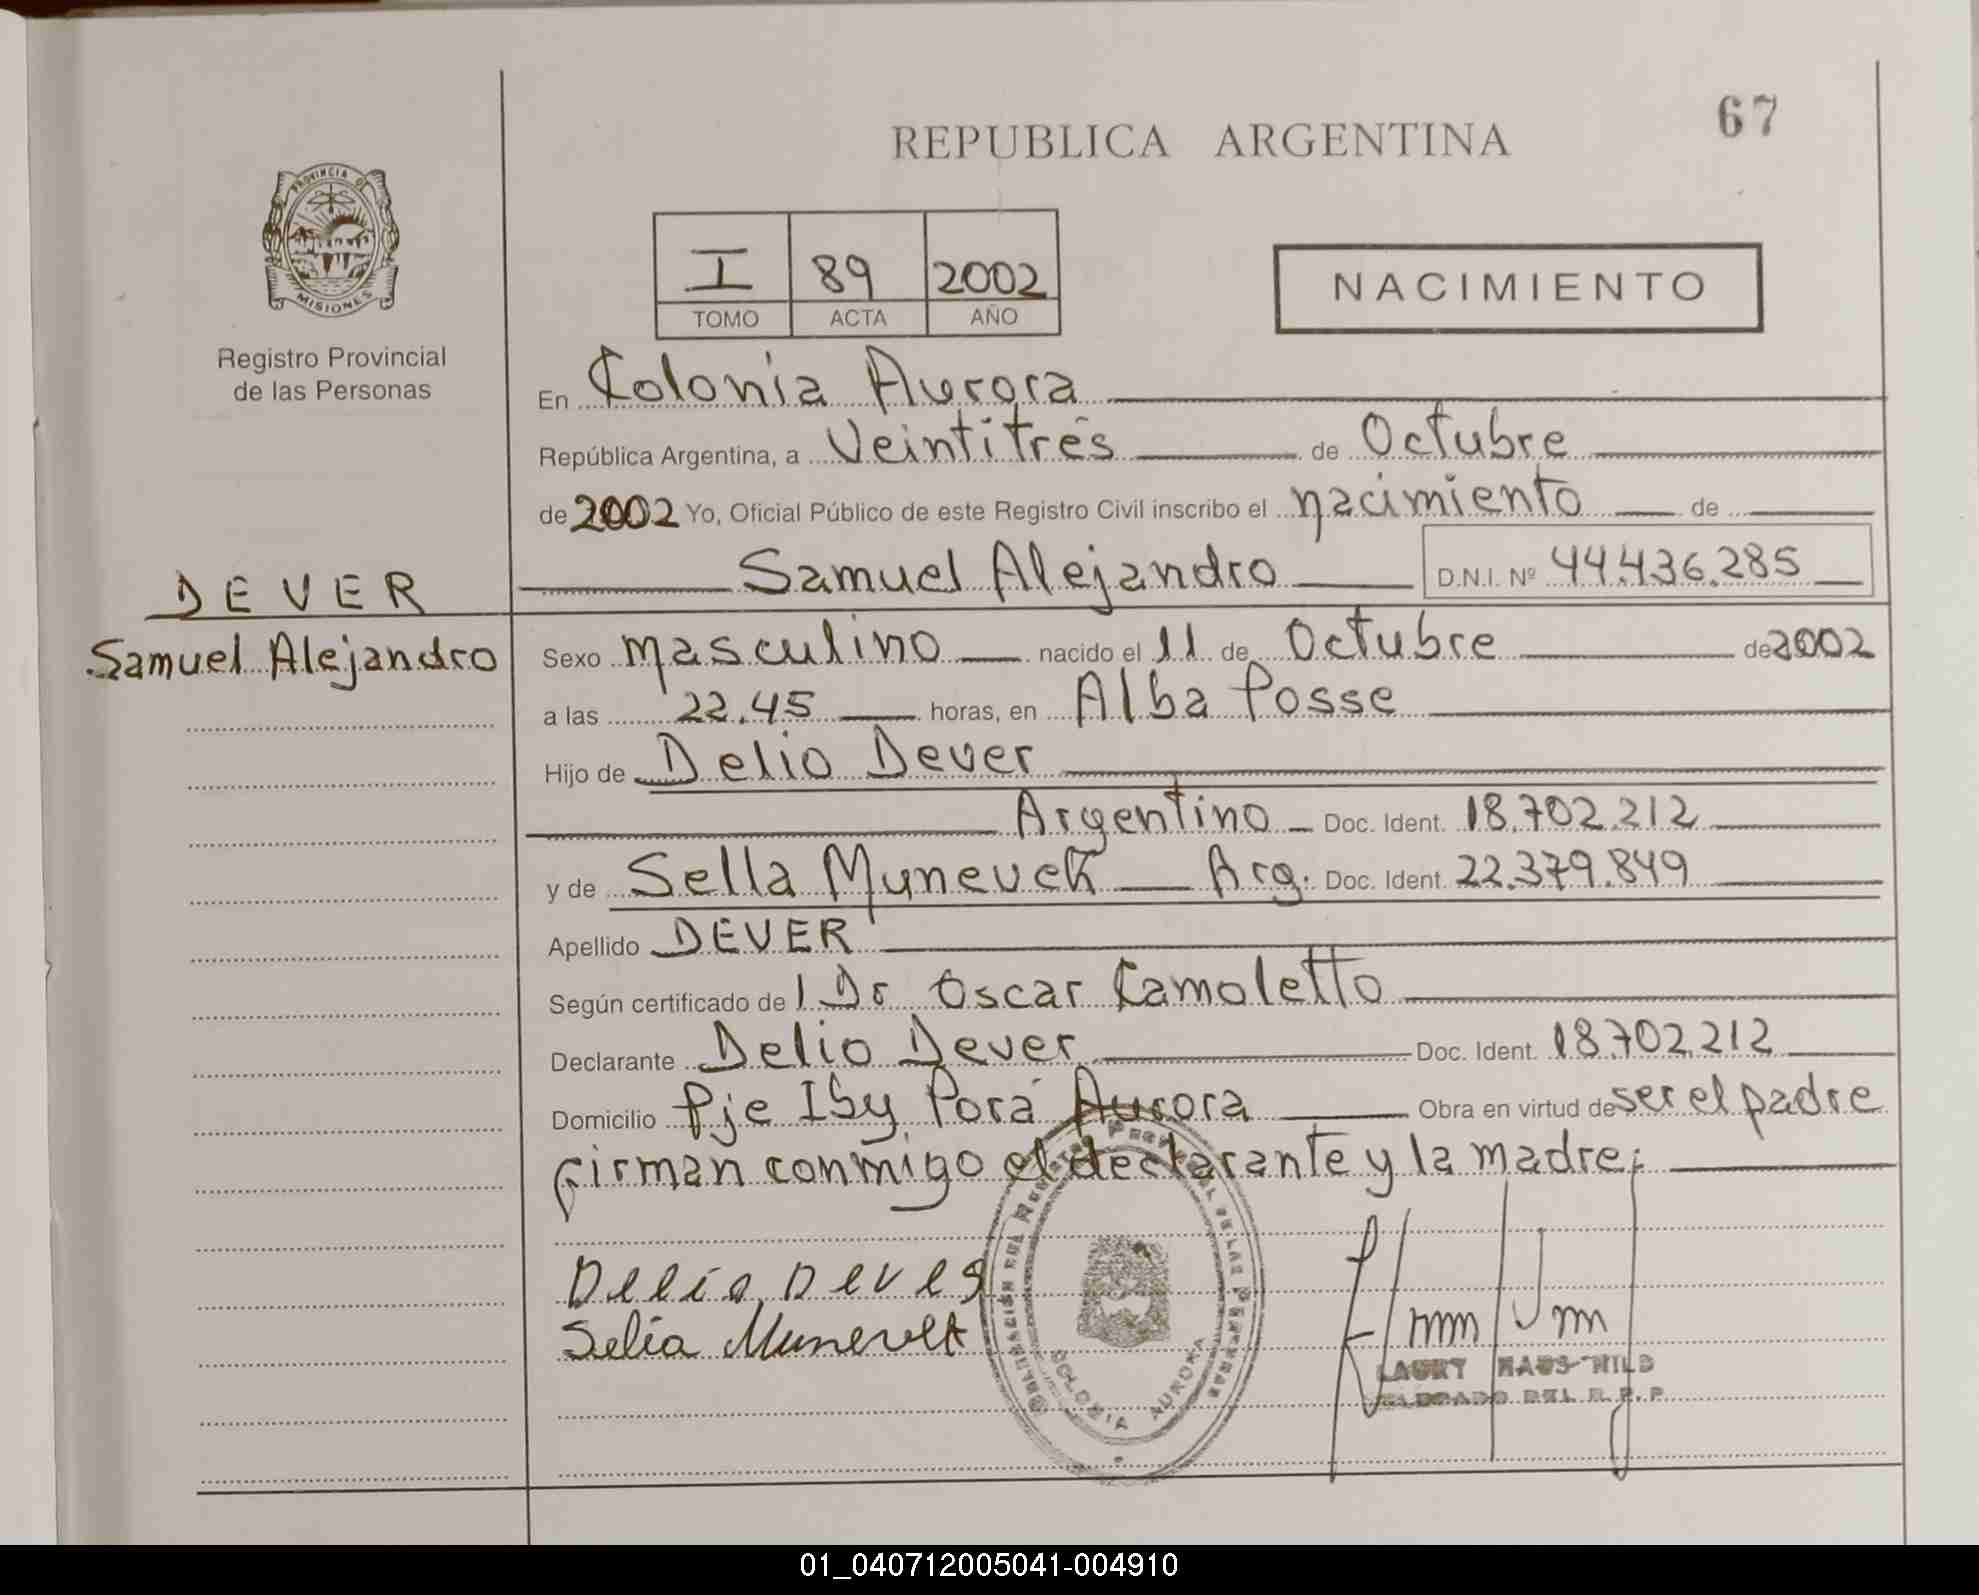 67
REPUBLICA ARGENTINA
PROVINCIA DE
MISIONES
Registro Provincial
de las Personas
I 89 2002
TOMO ACTA AÑO
NACIMIENTO
En Colonia Aurora
República Argentina, a Veintitrés de Octubre
de 2002 Yo, Oficial Público de este Registro Civil inscribo el nacimiento de
Samuel Alejandro D.N.I. Nº 44.436.285
DEVER
Samuel Alejandro
Sexo masculino nacido el 11 de Octubre de 2002
a las 22.45 horas, en Alba Posse
Hijo de Delio Dever
Argentino Doc. Ident. 18.702.212
y de Sella Munevek Arg. Doc. Ident. 22.379.849
Apellido DEVER
Según certificado de l Dr Oscar Camoletto
Declarante Delio Dever Doc. Ident. 18.702.212
Domicilio Pje Iby Porá Aurora Obra en virtud de ser el padre
firman conmigo el declarante y la madre;
Delio Dever
Selia
COLONIA AURORA
LAURY
DEL R.P.P
01_040712005041-004910